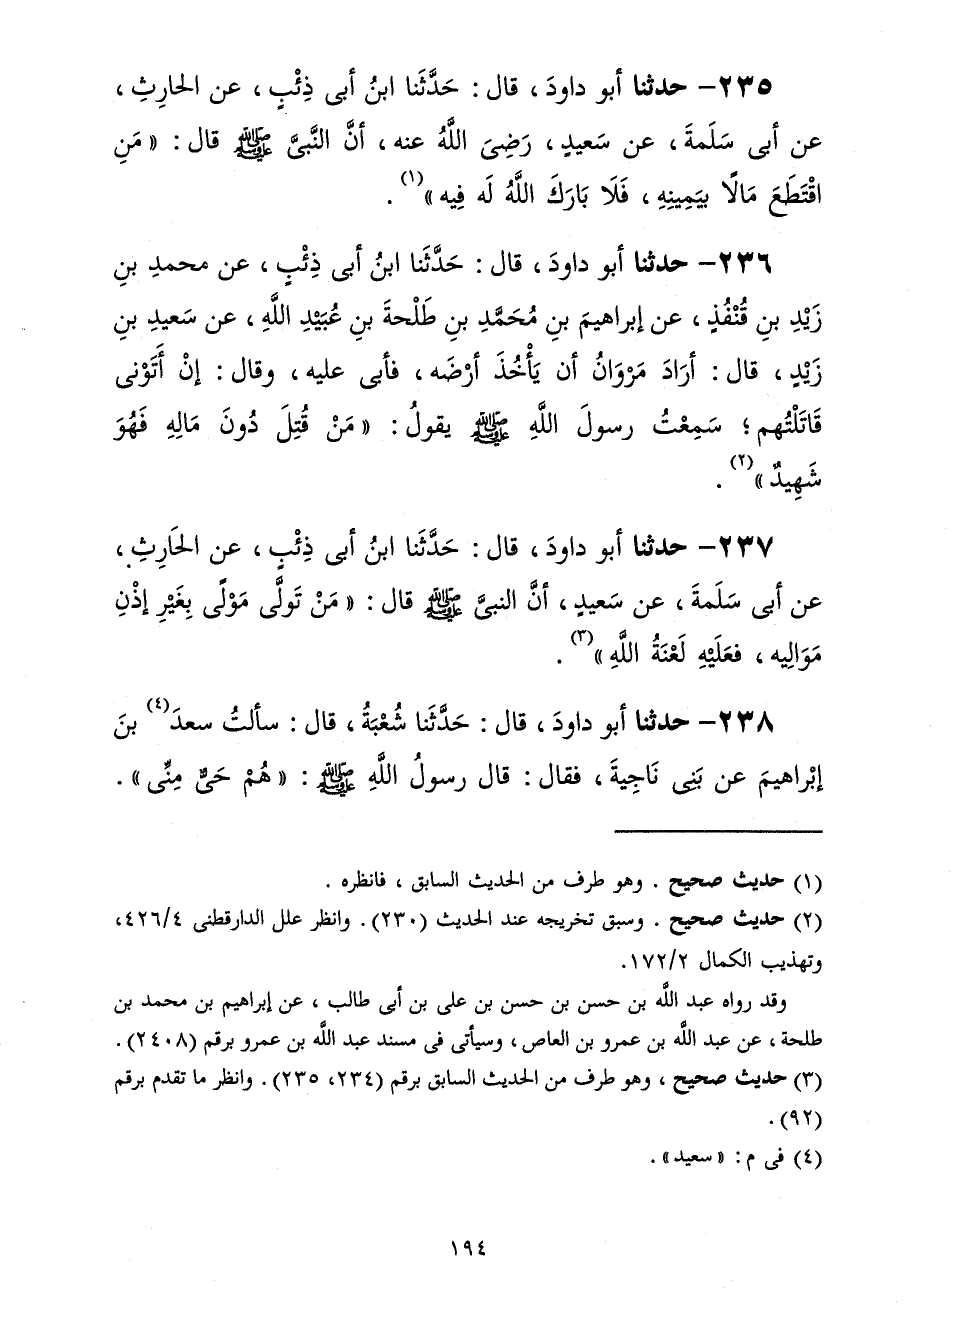 ٢٣٥- حدثنا أبو داودَ ، قال : حَدَّثَنا ابنُ أبى ذِئْبٍ ، عن الحارِثِ ،
عن أبى سَلَمةَ ، عن سَعيدٍ ، رَضِىَ اللَّهُ عنه ، أنَّ النَّبىَّ ﷺ قال : « مَنِ
اقْتَطَعَ مَالًا بيَمِينِهِ ، فَلَا بَارَكَ اللَّهُ لَه فِيه »(١) .
٢٣٦- حدثنا أبو داودَ ، قال : حَدَّثَنا ابنُ أبى ذِئْبٍ ، عن محمدِ بنِ
زَيْدِ بنِ قُنْفُذٍ ، عن إبراهيمَ بنِ مُحَمَّدِ بنِ طَلْحةَ بنِ عُبَيْدِ اللَّهِ ، عن سَعيدِ بنِ
زَيْدٍ ، قال : أرَادَ مَرْوَانُ أن يَأْخُذَ أرْضَه ، فأبى عليه ، وقال : إنْ أَتَوْنى
قَاتَلْتُهم ؛ سَمِعْتُ رسولَ اللَّهِ ﷺ يقولُ : « مَنْ قُتِلَ دُونَ مَالِهِ فَهُوَ
شَهِيدٌ »(٢) .
٢٣٧- حدثنا أبو داودَ ، قال : حَدَّثَنا ابنُ أبى ذِئْبٍ ، عن الحَارِثِ ،
عن أبى سَلَمةَ ، عن سَعيدٍ ، أنَّ النبىَّ ﷺ قال : « مَنْ تَولَّى مَوْلًى بِغَيْرِ إذْنِ
مَوَالِيه ، فعَلَيْهِ لَعْنَةُ اللَّهِ »(٣) .
٢٣٨- حدثنا أبو داودَ ، قال : حَدَّثَنا شُعْبَةُ ، قال : سألتُ سعدَ(٤) بنَ
إبْراهيمَ عن بَنِى نَاجِيةَ ، فقال : قال رسولُ اللَّهِ ﷺ : « هُمْ حَىٌّ مِنِّى » .
(١) حديث صحيح . وهو طرف من الحديث السابق ، فانظره .
(٢) حديث صحيح . وسبق تخريجه عند الحديث (٢٣٠) . وانظر علل الدارقطنى ٤٢٦/٤ ،
وتهذيب الكمال ١٧٢/٢.
وقد رواه عبد اللَّه بن حسن بن حسن بن على بن أبى طالب ، عن إبراهيم بن محمد بن
طلحة ، عن عبد اللَّه بن عمرو بن العاص ، وسيأتى فى مسند عبد اللَّه بن عمرو برقم (٢٤٠٨) .
(٣) حديث صحيح ، وهو طرف من الحديث السابق برقم (٢٣٤، ٢٣٥) . وانظر ما تقدم برقم
(٩٢) .
(٤) فى م : « سعيد » .
١٩٤